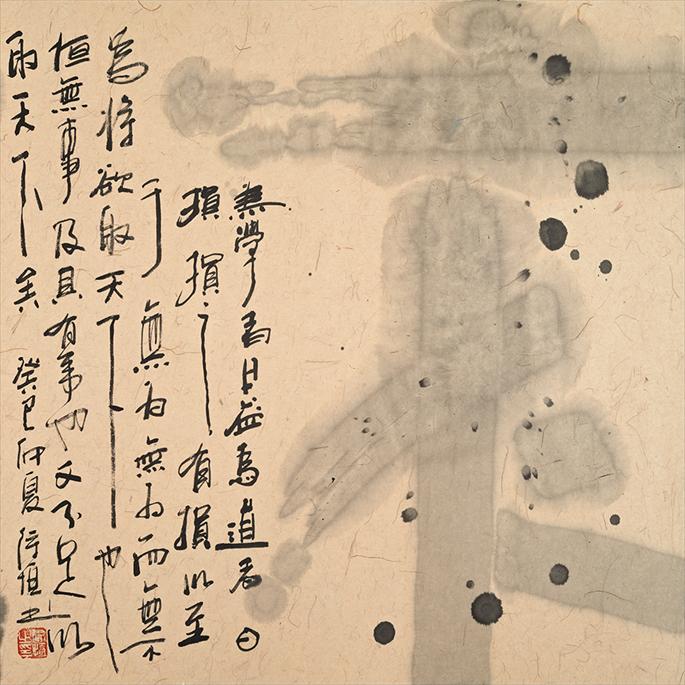 為學者日益為道者日
損損之有損以至
于無為無為而無不
為將欲取天下也
恒無事及其有事也又不足以
取天下矣 癸巳仲夏